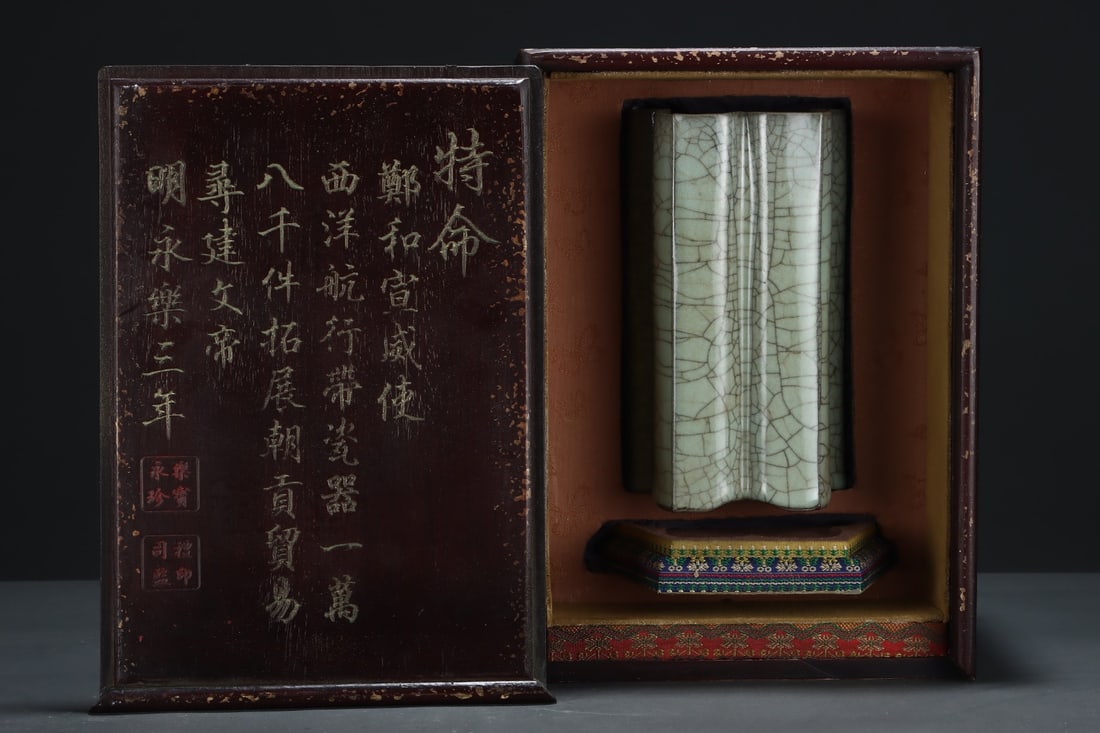 特命
鄭和宣威使
西洋航行帶瓷器一萬
八千件拓展朝貢貿易
尋建文帝
明永樂三年
樂寶
永珍